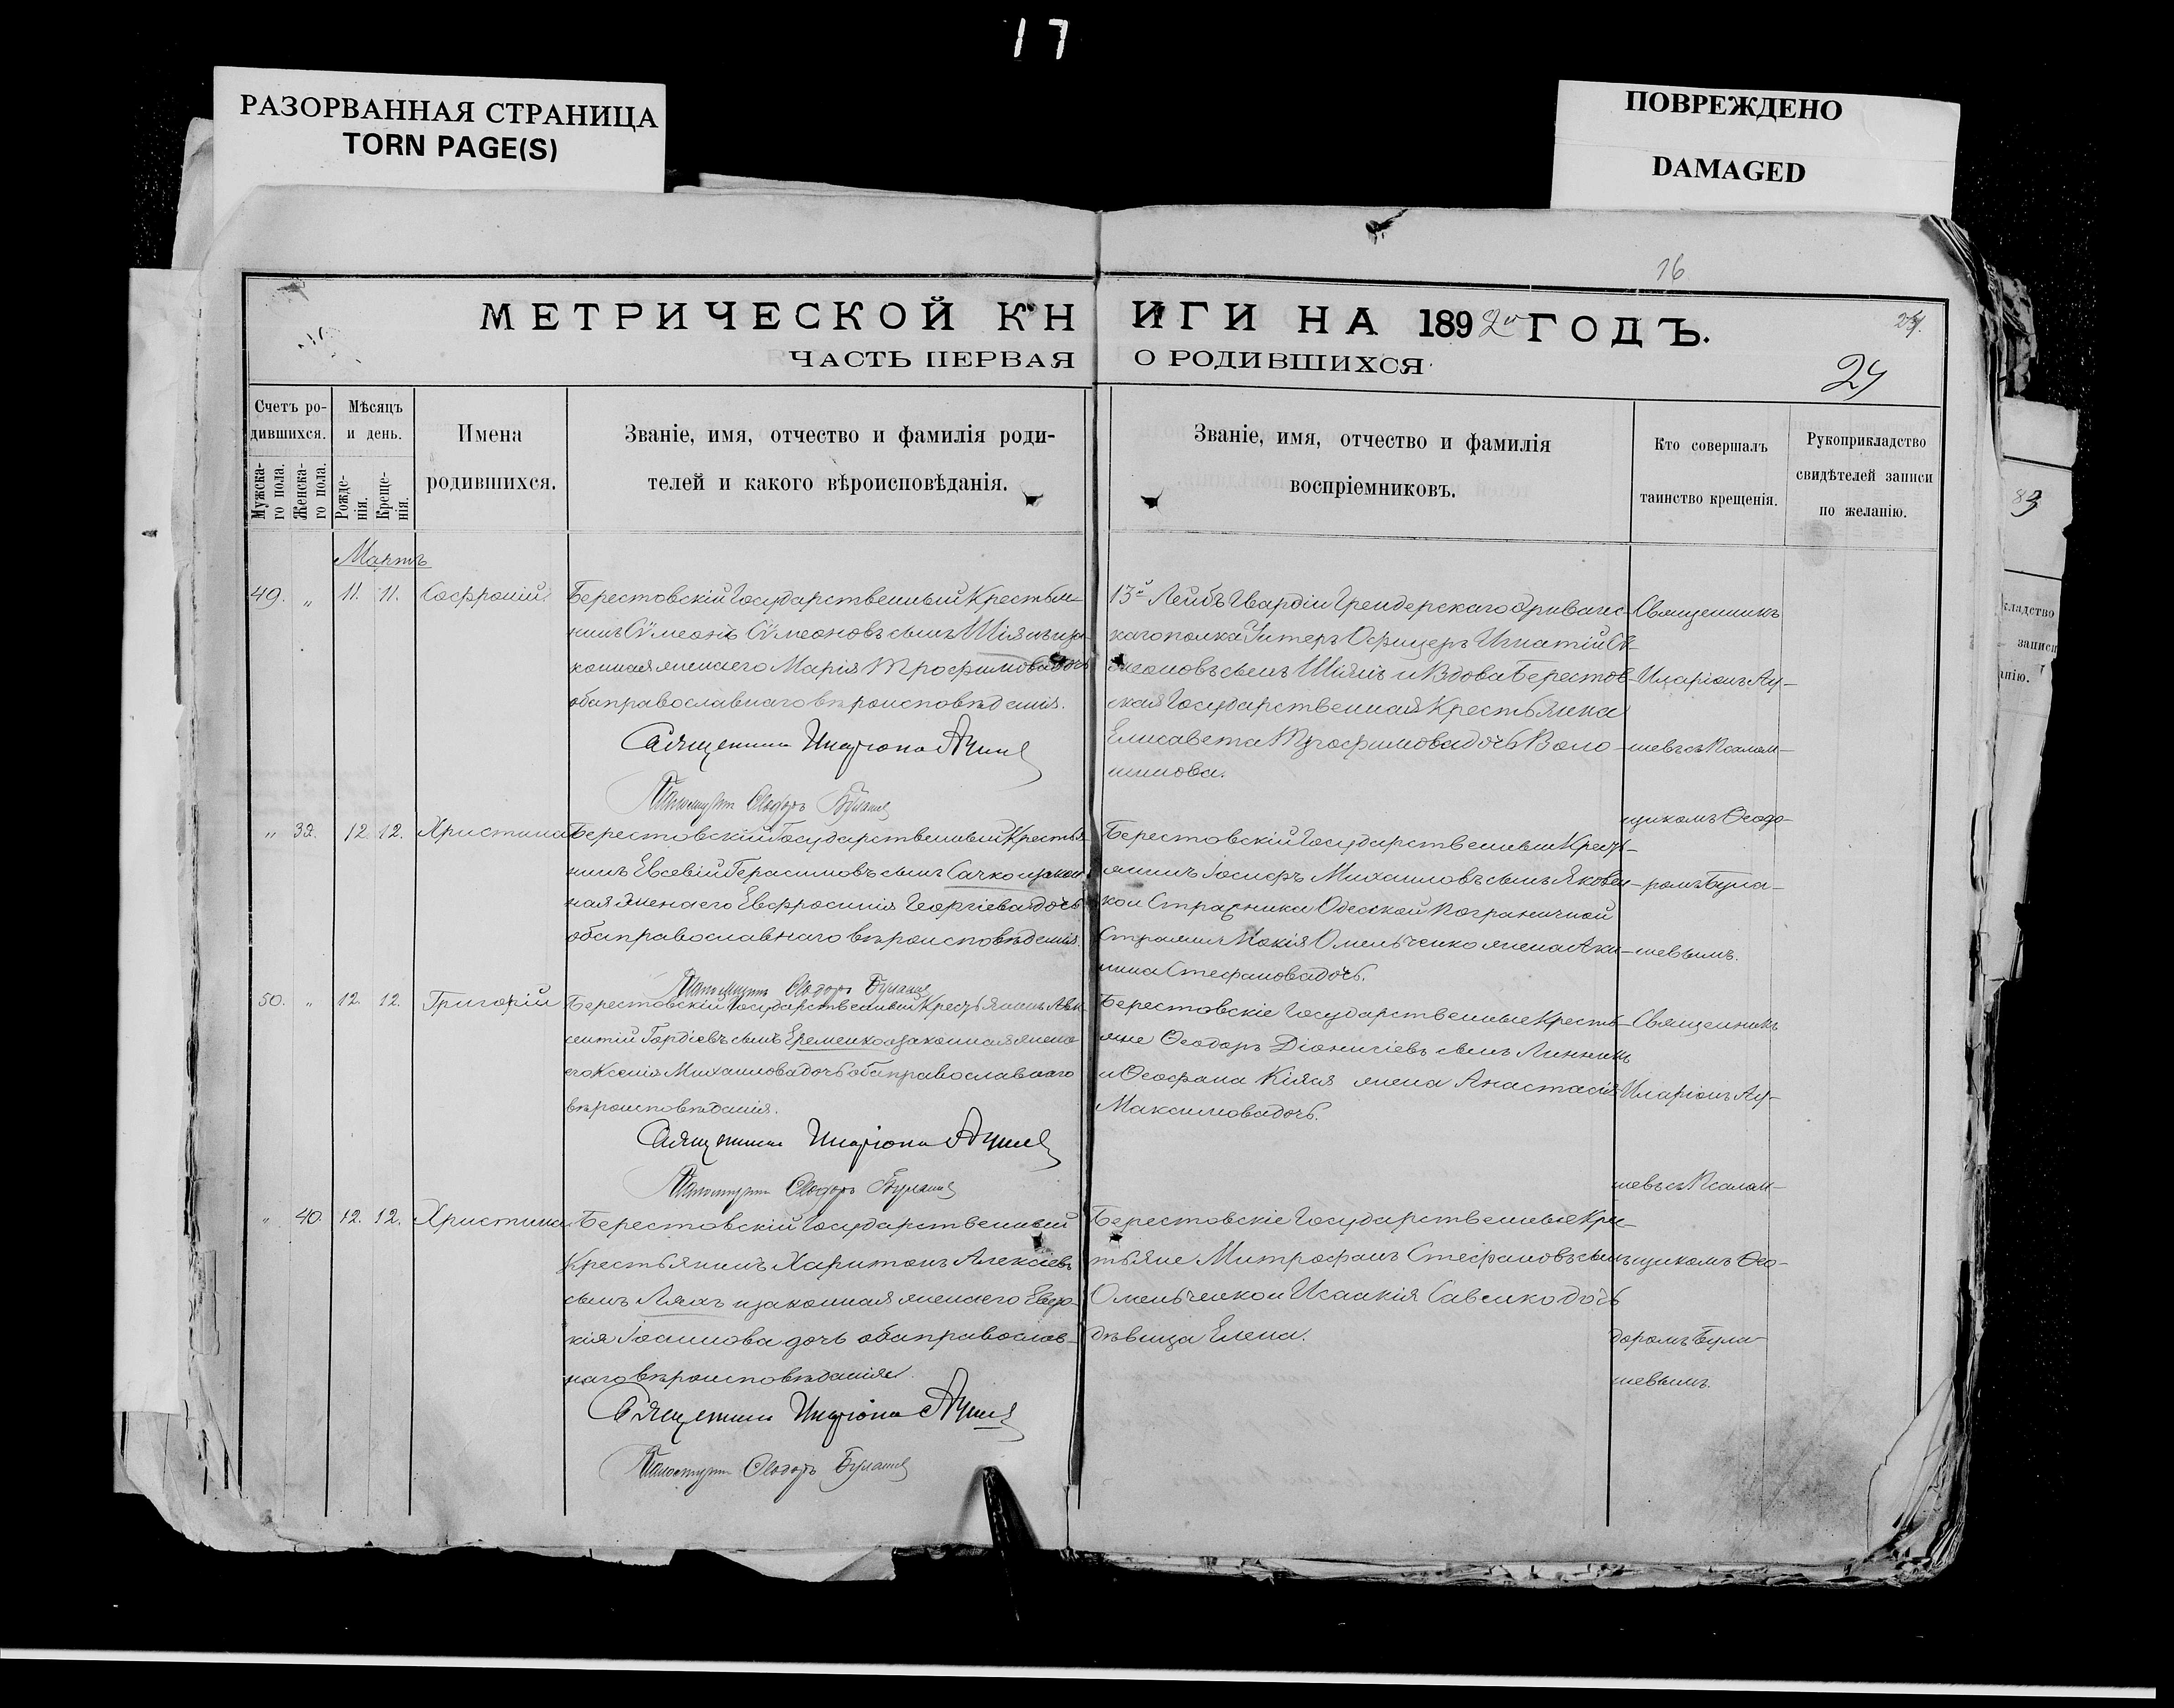 17
РАЗОРВАННАЯ СТРАНИЦА
TORN PAGE(S)
ПОВРЕЖДЕНО
DAMAGED
16
МЕТРИЧЕСКОЙ КНИГИ НА 1892й ГОДЪ.
ЧАСТЬ ПЕРВАЯ О РОДИВШИХСЯ
Счетъ ро-
дившихся.
Мужска-
го пола.
Женска-
го пола.
Мѣсяцъ
и день.
Рожде-
нія.
Креще-
нія.
Имена
родившихся.
Званіе, имя, отчество и фамилія роди-
телей и какого вѣроисповѣданія.
Званіе, имя, отчество и фамилія
воспріемниковъ.
Кто совершалъ
таинство крещенія.
Рукоприкладство
свидѣтелей записи
по желанію.
Мартъ
49. „ 11. 11. Софроній.
Берестовскій Государственный Крестья-
нинъ Сѵмеонъ Сѵмеоновъ сынъ Шіянъ и за-
конная жена его Марія Трофимова дочь
оба православнаго вѣроисповѣданія.
Священникъ Иларіонъ
Псаломщикъ Ѳеодоръ Булашев
13й Лейбъ Гвардіи
каго полка Унтеръ Офицеръ Игнатій Сѵ-
меоновъ сынъ Шіянъ и Вдова Берестов-
ская Государственная Крестьянка
Елисавета Трофимова дочь Воло-
шинова.
„ 39. 12. 12. Христина
Берестовскій Государственный Крестья-
нинъ Евсевій Герасимовъ сынъ Сачко и закон-
ная жена его Евфросинія Георгіева дочь
оба православнаго вѣроисповѣданія.
Псаломщикъ Ѳеодоръ Булашев
Берестовскій Государственный Кресть-
янинъ Іосифъ Михаиловъ сынъ Яковен-
ко и Стражника Одесской Пограничной
Стражи Мокія Омельченко жена Аки-
лина Стефанова дочь.
50. „ 12. 12. Григорій
Берестовскій Государственный Крестьянинъ Авк-
сентій Гордіевъ сынъ Еременко и законная жена
его Ксенія Михаилова дочь оба православнаго
вѣроисповѣданія.
Священникъ Иларіонъ
Псаломщикъ Ѳеодоръ Булашев
Берестовскіе Государственные Кресть-
яне Ѳеодоръ Діонисіевъ сынъ Линникъ
и Ѳеофана Кіяя жена Анастасія
Максимова дочь.
„ 40. 12. 12. Христина
Берестовскій Государственный
Крестьянинъ Харитонъ Алексіевъ
сынъ Ляхъ и законная жена его Евдо-
кія Іоаннова дочь оба православ-
наго вѣроисповѣданія.
Священникъ Иларіонъ
Псаломщикъ Ѳеодоръ Булашев
Берестовскіе Государственные Крес-
тьяне Митрофанъ Стефановъ сынъ
Омельченко и Исаакія Савенко дочь
дѣвица Елена.
Священникъ
Иларіонъ Ау-
шевъ съ Псалом-
щикомъ Ѳеодо-
ромъ Була-
шевымъ.
Священникъ
Иларіонъ Ау-
шевъ съ Псалом-
щикомъ Ѳео-
доромъ Була-
шевымъ.
83
кладство
записи
анію.